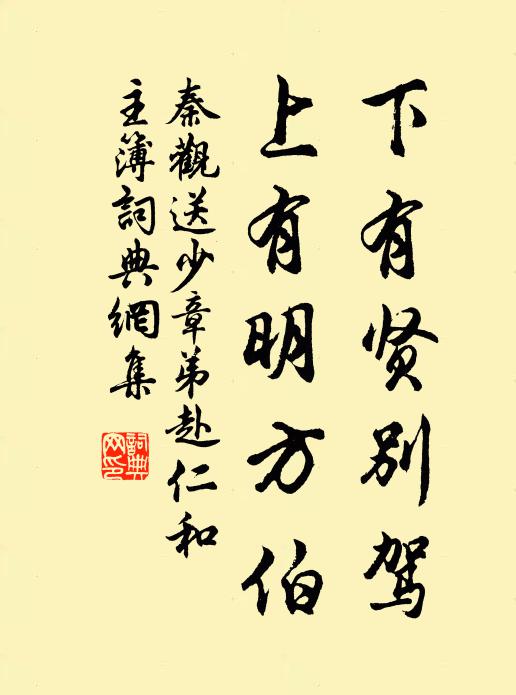 下有贤别驾
上有明方伯
秦觀送少章弟赴仁和
主簿詞典網集
詞典
网印